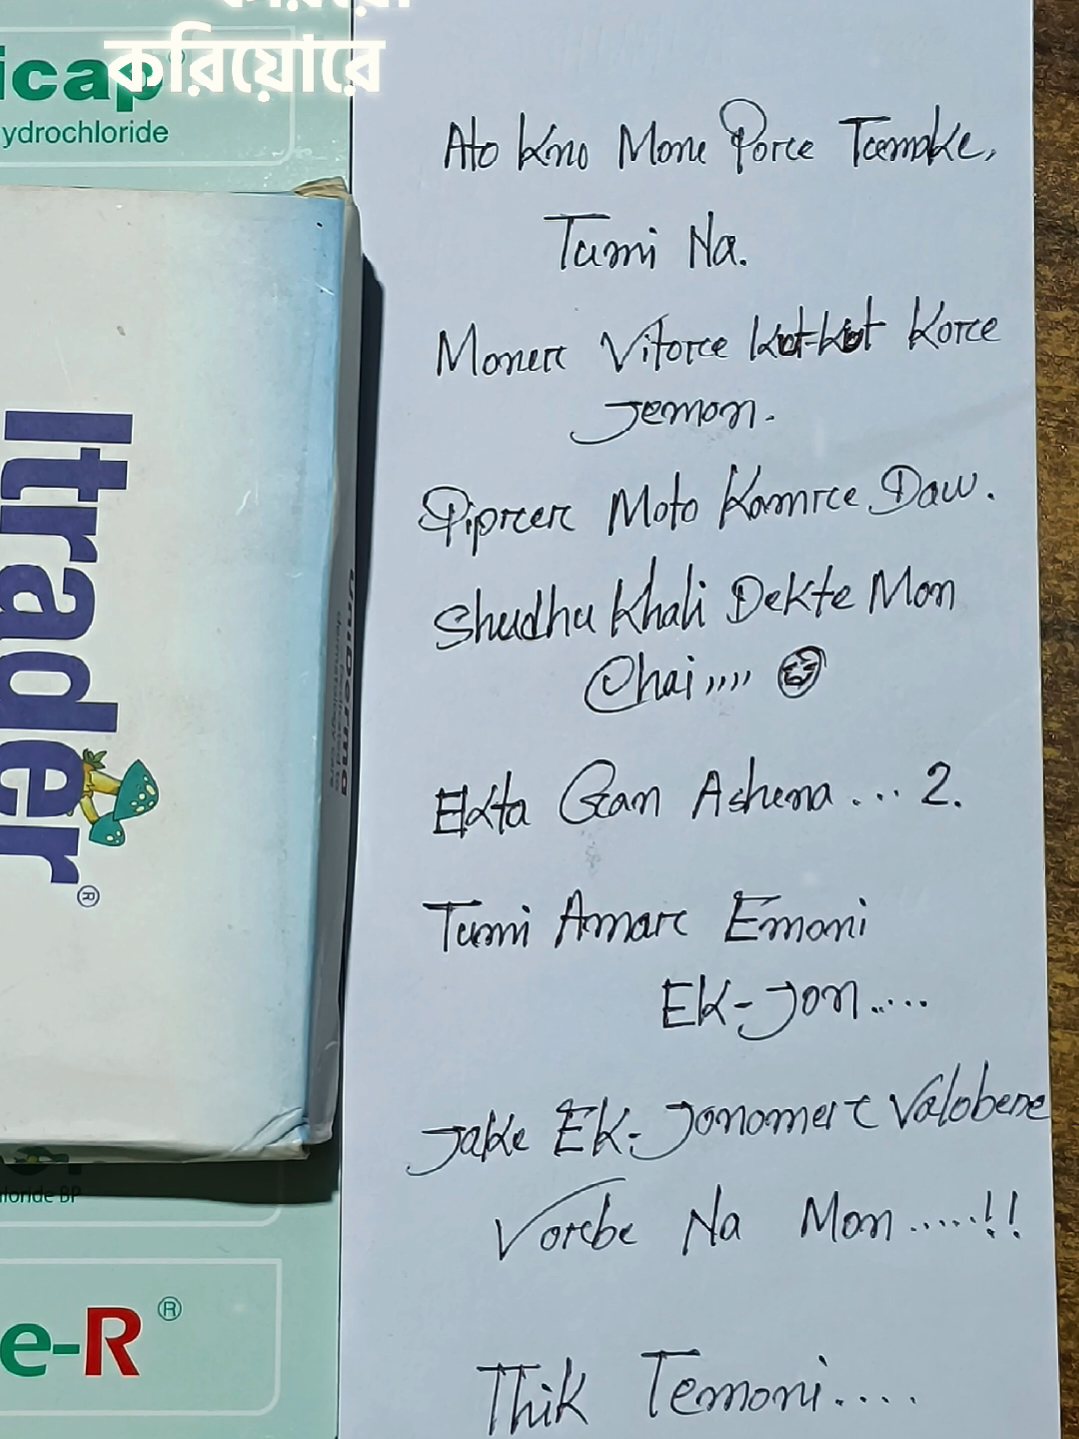 করিয়োরে
icap
ydrochloride
Ato Kno Mone Porce Tomake,
Tumi Na.
Monerc Vitorce Kut-Kut Korce
Jemon.
Piprcerc Moto Kamrce Daw.
Shudhu Khali Dekte Mon
Chai,,,,
Ekta Gan Ashena... 2.
Tumi Amarc Emoni
EK-Jon.....
Jake EK-Jonomerc Valobese
Vorcbe Na Mon.....!!
Thik Temoni....
Itrader®
loride BP
e-R®